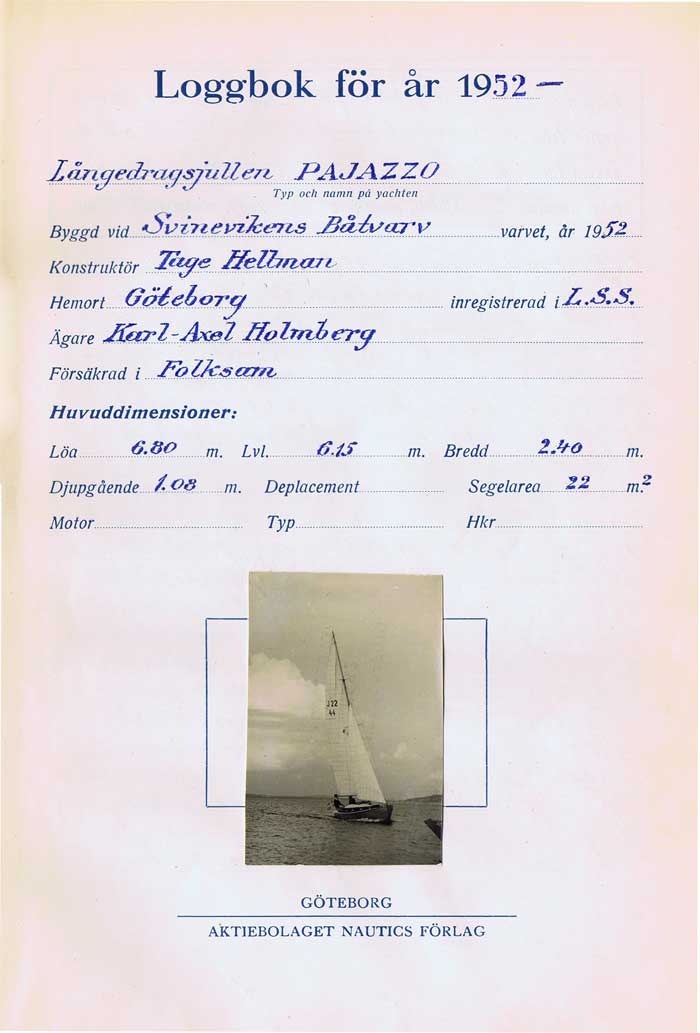 Loggbok för år 1952 —
Långedragsjullen PAJAZZO
Typ och namn på yachten
Byggd vid Svinevikens Båtvarv varvet, år 1952
Konstruktör Tage Hellman
Hemort Göteborg inregistrerad i L.S.S.
Ägare Karl-Axel Holmberg
Försäkrad i Folksam
Huvuddimensioner:
Löa 6.80 m. Lvl. 6.15 m. Bredd 2.40 m.
Djupgående 1.08 m. Deplacement Segelarea 22 m.²
Motor Typ Hkr
J22
44
GÖTEBORG
AKTIEBOLAGET NAUTICS FÖRLAG